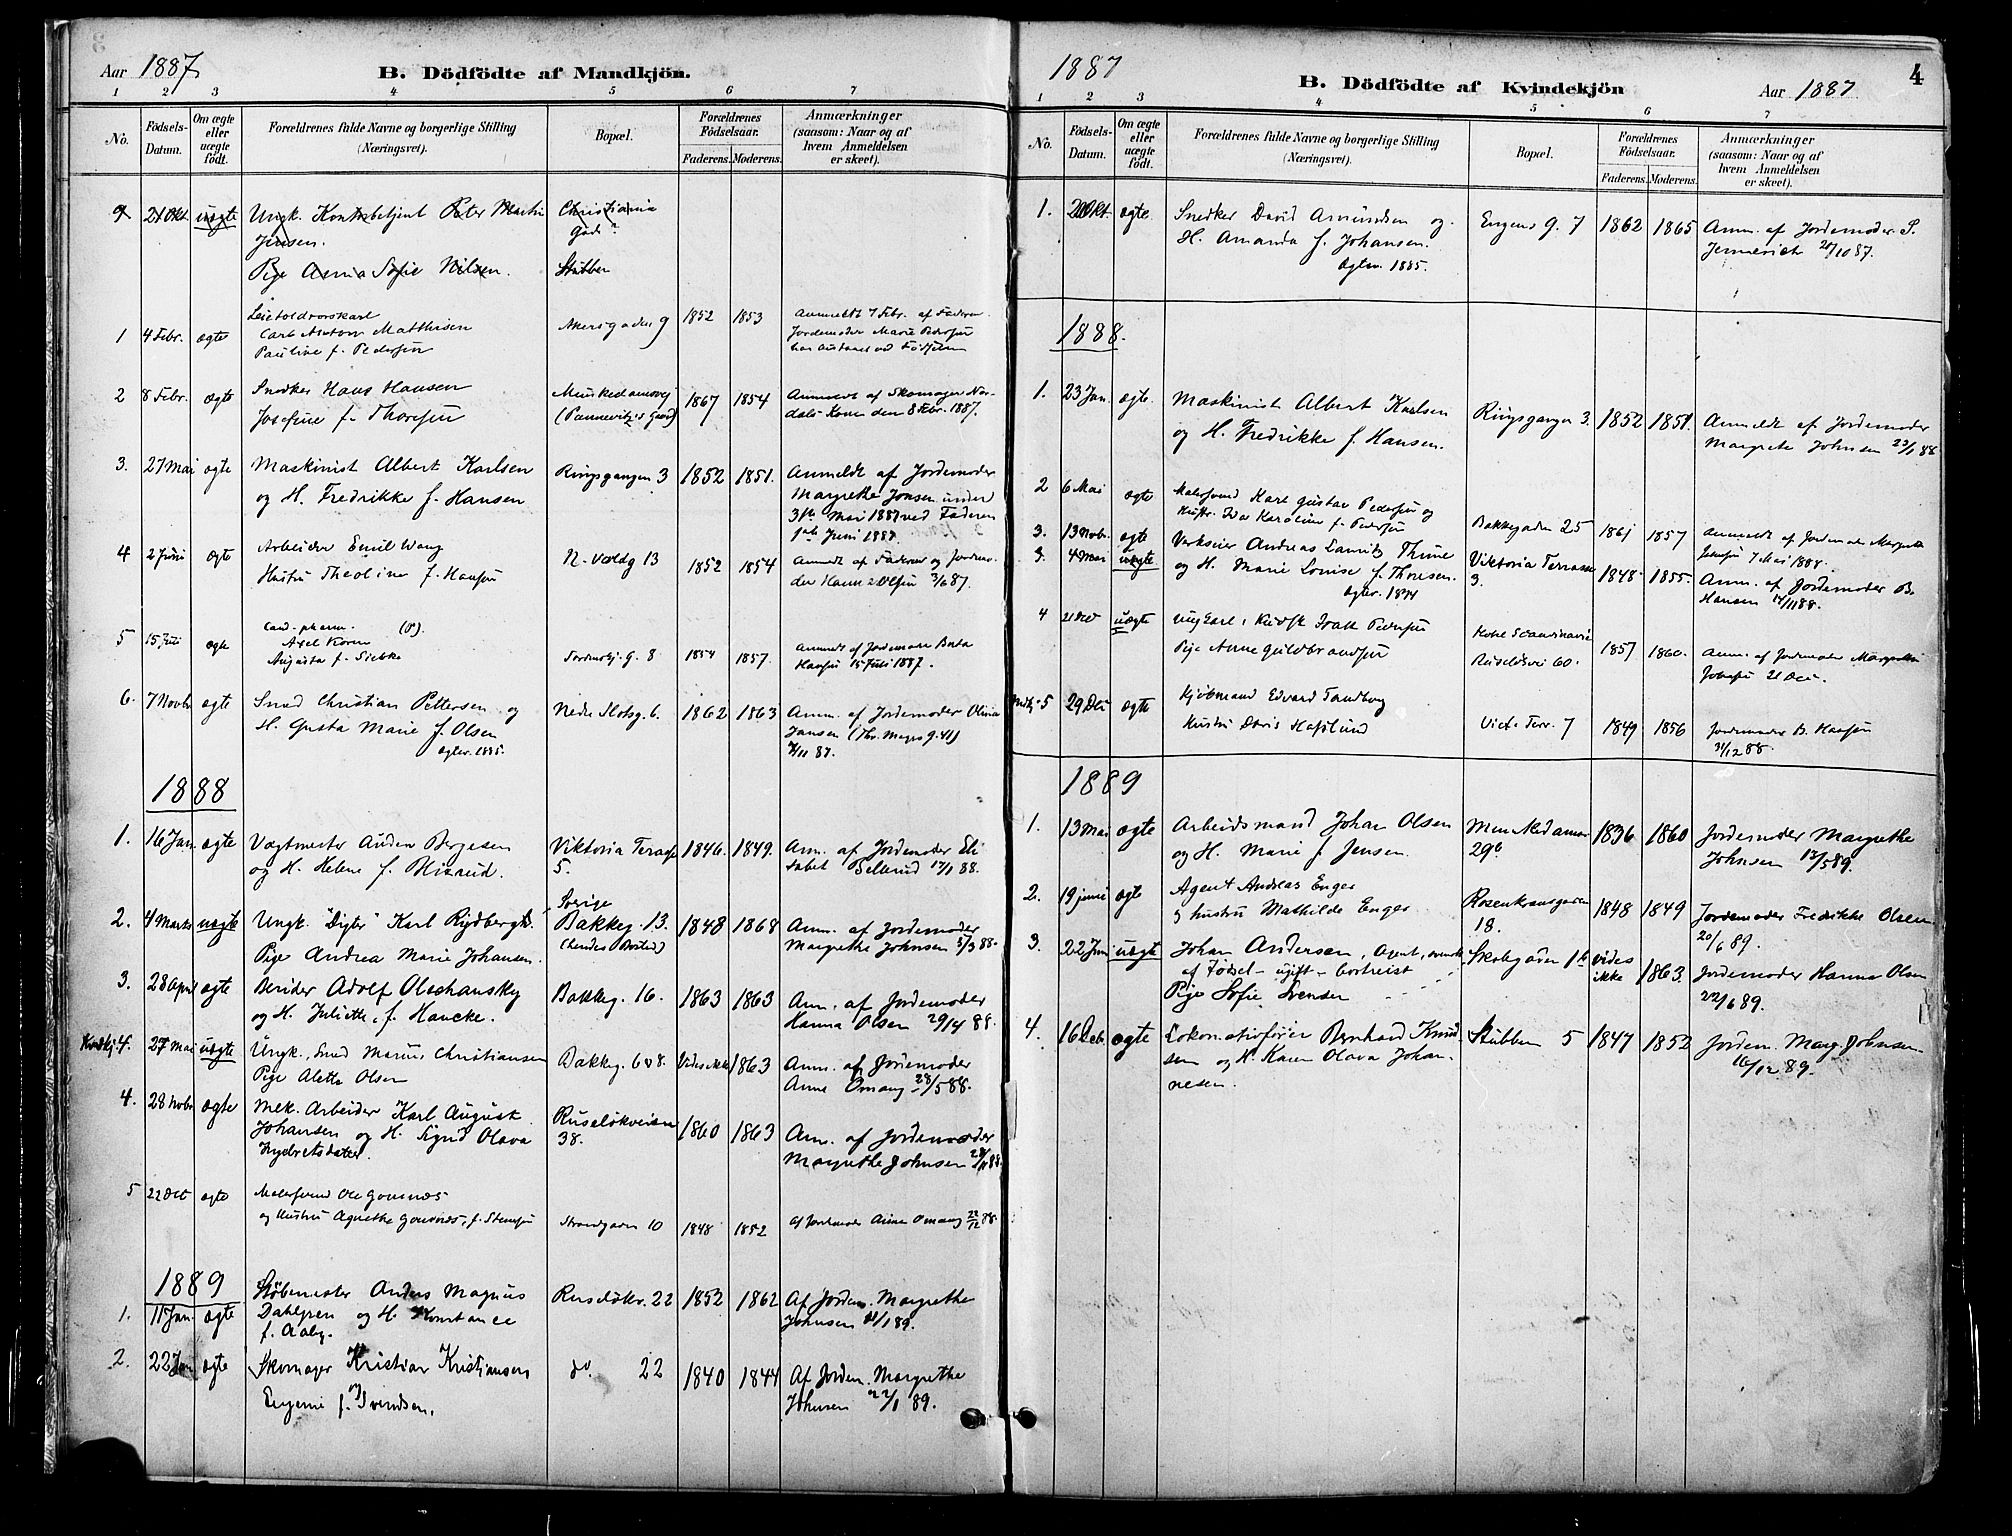 Aar 1887.
B. Dödfödte af Mandkjön.
1 2 3 4 5 6 7
No.
Födsels-Datum.
Om ægte eller uægte födt.
Forældrenes fulde Navne og borgerlige Stilling (Næringsvei).
Bopæl.
Forældrenes Födselsaar.
Faderens. Moderens.
Anmærkninger (saasom: Naar og af hvem Anmeldelsen er skeet).
21 Okt. uægte Ungk. Kontorbetjent Peter Martin Christiania
Jensen. Gade?
Pige Anna Sofie Nilsen. Stubben
1 4 Febr. ægte
Carl Anton Matthisen Akersgaden 9 1852 1853 Anmeldt 7 Febr. af Faderen.
Pauline f. Pedersen Jordemoder Marie Pedersen
2 8 Febr. ægte Snedker Hans Hansen Munkedamsvej 1867 1854 Anmeldt af Skomager
Josefine f. Thoresen Kone den 8 Febr. 1887.
3. 27 Mai ægte Maskinist Albert Karlsen Ringsgangen 3 1852 1851. Anmeldt af Jordemoder
og H. Fredrikke f. Hansen Margrethe Jonsen under
31te Mai 1887 ved Faderen
Juni 1887.
4 2 Juni ægte Arbeider Emil Wang N. Voldg 13 1852 1854 Anmeldt af Faderen og Jordemo-
Hustru Theoline f. Hansen der Hanna Olsen 3/6 87.
5 15 Juli ægte Cand. pharm.
Axel
Augusta f. Siebke G. 8 1854 1857. Anmeldt af Jordemoder
Hansen 15 Juli 1887.
6. 7 Novbr ægte Smed Christian Pettersen og Nedre Slotsg. 6. 1862 1863 Anm. af Jordemoder Olina
H. Gusta Marie f. Olsen Jansen (Th. Meyers g. 41)
Ægtev. 1885. 11 87.
1888
1. 16 Jan ægte Vagtmester Anders Bergesen Viktoria Terasse 1846. 1849. Anm. af Jordemoder Eli
og H. Helene f. 5. sabet 17/1 88.
Sverige
2. 4 Marts uægte Ungk. "Digter" Karl Rydbergh. Bakkeg. 13. 1848 1868 Anm. af Jordemoder
Pige Andrea Marie Johansen. (hendes Bosted) Margrethe Johnsen 5/3 88.
3. 28 April ægte Berider Adolf Olschansky Bakkeg. 16. 1863 1863 Anm. af Jordemoder
og H. Juliette, f. Hancke. Hanna Olsen 29/4 88.
Kvindkj. 4. 27 Mai uægte Ungk. Smed Marius Christiansen Bakkeg. 6 8. Vides ikke 1863 Anm. af Jordemoder
Pige Alette Olsen Anne Omang 28/5 88.
4. 28 Novbr ægte Mek. Arbeider Karl August Ruseløkveien 1860 1863 Anm. af Jordemoder
Johansen og H. Sigrid Olava 38. Margrethe Johnsen 28/11 88.
5 22 Dec ægte Malersvend Ole
og Hustru Agnethe Strandgaden 10 1848 1852 Af Jordemoder Anne Omang 22/12 88.
1889
1. 11 Jan. ægte Støbemester Anders Magnus Ruseløkv. 22 1852 1862 Af Jordem. Margrethe
Dahlgren og H. Konstance Johnsen 11/1 89.
f. Aaby.
2. 22 Jan ægte Skomager Kristian Kristiansen do. 22 1840 1844 Af Jordem. Margrethe
og Eugenie f. Svendsen. Johnsen 22/1 89.
1887
B. Dödfödte af Kvindekjön
Aar 1887
4
1 2 3 4 5 6 7
No.
Födsels-Datum.
Om ægte eller uægte födt.
Forældrenes fulde Navne og borgerlige Stilling (Næringsvei).
Bopæl.
Forældrenes Födselsaar.
Faderens. Moderens.
Anmærkninger (saasom: Naar og af hvem Anmeldelsen er skeet).
1. 20 Okt. ægte Snedker David Amundsen og Engens g. 7 1862 1865 Anm. af Jordemoder S.
H. Amanda f. Johansen. 20/10 87.
Ægtev. 1885.
1888.
1. 23 Jan. ægte. Maskinist Albert Karlsen Ringsgangen 3. 1852 1851. Anmeldt af Jordemoder
og H. Fredrikke f. Hansen. Margrete Johnsen 23/1 88
2 6 Mai ægte Malersvend Karl Gustav Pedersen og
Hustr. Ida Karoline f. Pedersen Bakkegaden 25 1861 1857 Anmeldt af Jordemoder Margrete
Johnsen 7 Mai 1888.
3. 13 Novb. ægte Verkseier Andreas Lauritz Thune Viktoria Terrasse 1848 1855. Anm. af Jordemoder B.
3. 4 Mai uægte og H. Marie Louise f. Thoresen. 3. Hansen 14/11 88.
Ægtev. 1874
4 21 Dec uægte Pedersen Hotel Scandinavie
Pige Anne Guldbrandsen Ruseløkvei 60. 1857 1860. Anm. af Jordemoder Margrethe
Johnsen 21 Dec.
5 29 Dec ægte Kjøbmand Edvard Tandberg
Hustru Doris Hafslund Vict. Terr. 7 1849 1856 Jordemoder B. Hansen
31/12 88.
1889
1. 13 Mai ægte Arbeidsmand Johan Olsen Munkedamsv 1836 1860 Jordemoder Margrethe
og H. Marie f. Jensen. 29b Johnsen 13/5 89.
2. 19 juni ægte Agent Andreas Enger Rosenkransgaden 1848 1849 Jordemoder Fredrikke Olsen
og hustru Mathilde Enger 18. 20/6 89.
3. 22 Juni uægte Johan Andersen, Agent, svensk Skolegaden 1b vides 1863. Jordemoder Hanna Olsen
af Fødsel - ugift - bortreist ikke 22/6 89.
Pige Sofie Svensen
4. 16 Deb. ægte Lokomotivfører Bernhard Knud- Stubben 5 1847 1852 Jordem. Marg. Johnsen
sen og H. Karen Olava Johan- 16/12 89.
nesen.